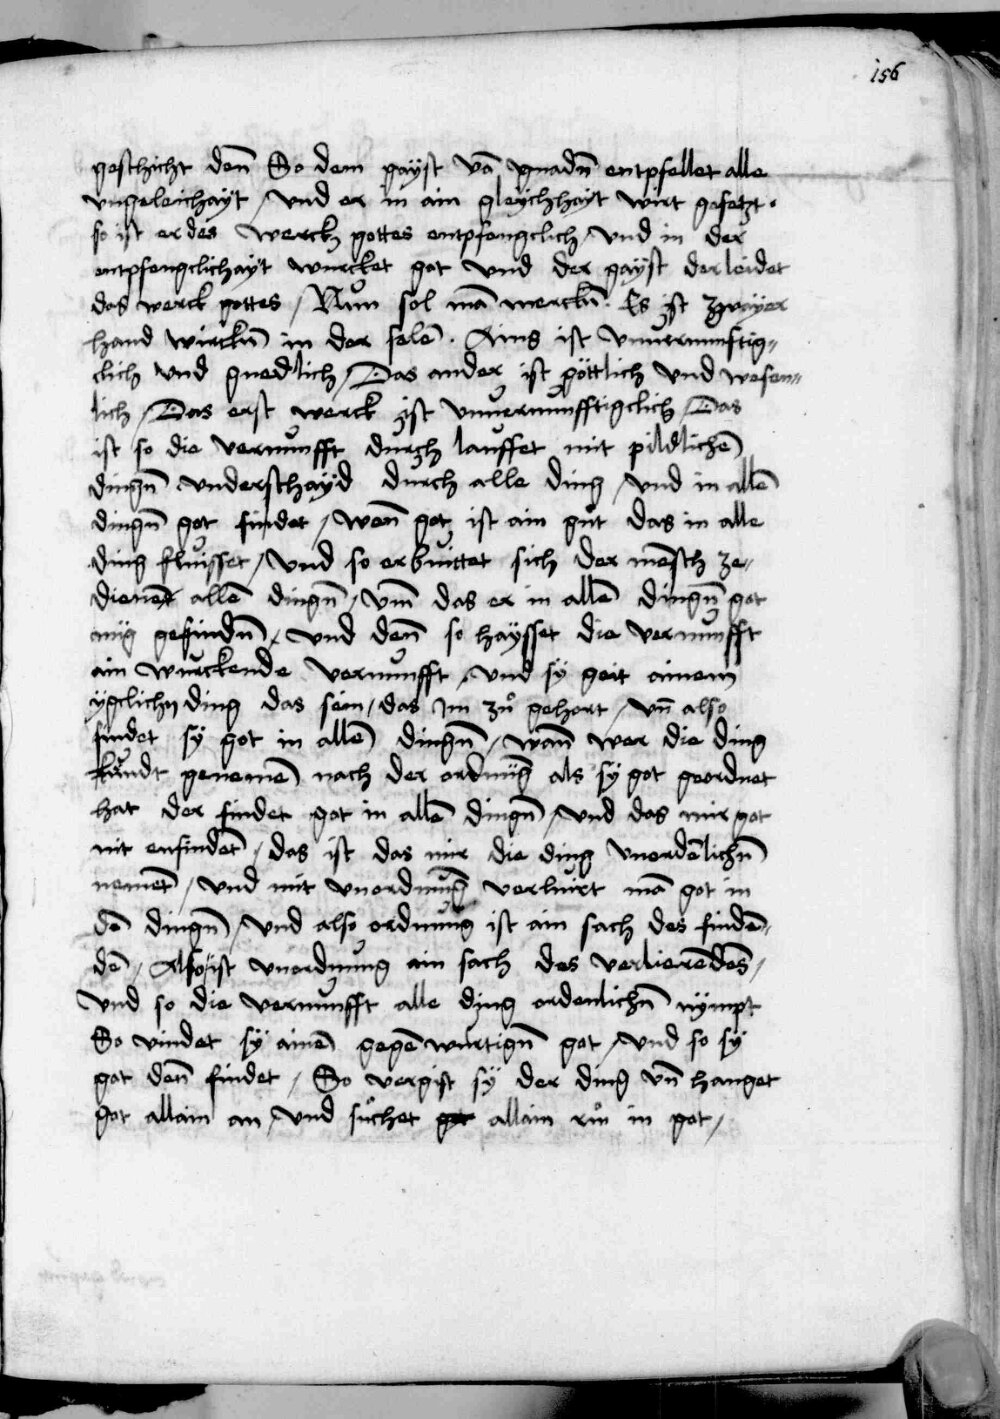 156
geschicht den̄ So dem gayst vō gnadn̄ entpfellet alle
vngeleichayt / vnd er in ain gleychhayt wirt gesetzt ·
so ist er des wercks gottes entpfengclich / vnd in der
entpfengclichayt wurcket got vnd der gayst der leidet
das werck gottes / Nun sol mā merckn̄ · Es ist zwayer
hand wirckn̄ in der selē · Ains ist vnuernunftig„
clich vnd gnedlich / Das ander ist göttlich vnd wesen„
lich / Das erst werck ist vnuernunfftigclich / Das
ist so die vernunfft durch lauffet mit pildlichē
dingn̄ vnderschayd durch alle ding / vnd in allē
dingn̄ got findet / wen̄ got ist ain gůt das in alle
ding flüsset / vnd so erbüttet sich der mēsch ze„
dienen allē dingn̄ / vm̄ das er in allē dingn̄ got
müg gefindn̄ / vnd den̄ so haysset die vernunfft
ain wurckende vernunfft / vnd sy geit ainem
ygclichn̄ ding das sein / das Im zů gehort / vn̄ also
findet sy got in allē dingn̄ / wan̄ wer die ding
kundt genemē nach der ordnūg als sy got geordnet
hat der findet got in allē dingn̄ / vnd das mir got
nit enfindēt / das ist das mir die ding vnordēlichn̄
nemēt / vnd mit vnordnung verlürt mā got in
dē dingn̄ / vnd also ordnung ist ain sach des findē„
dē / Also ist vnordnung ain sach des verlierēdēs /
vnd so die vernunfft alle ding ordenlichn̄ nympt
So vindet sy ainē gegēwurtign̄ got / vnd so sy
got den̄ findet / So vergist sy der ding vn̄ hanget
got allain an / vnd sůchet allain rů in got /